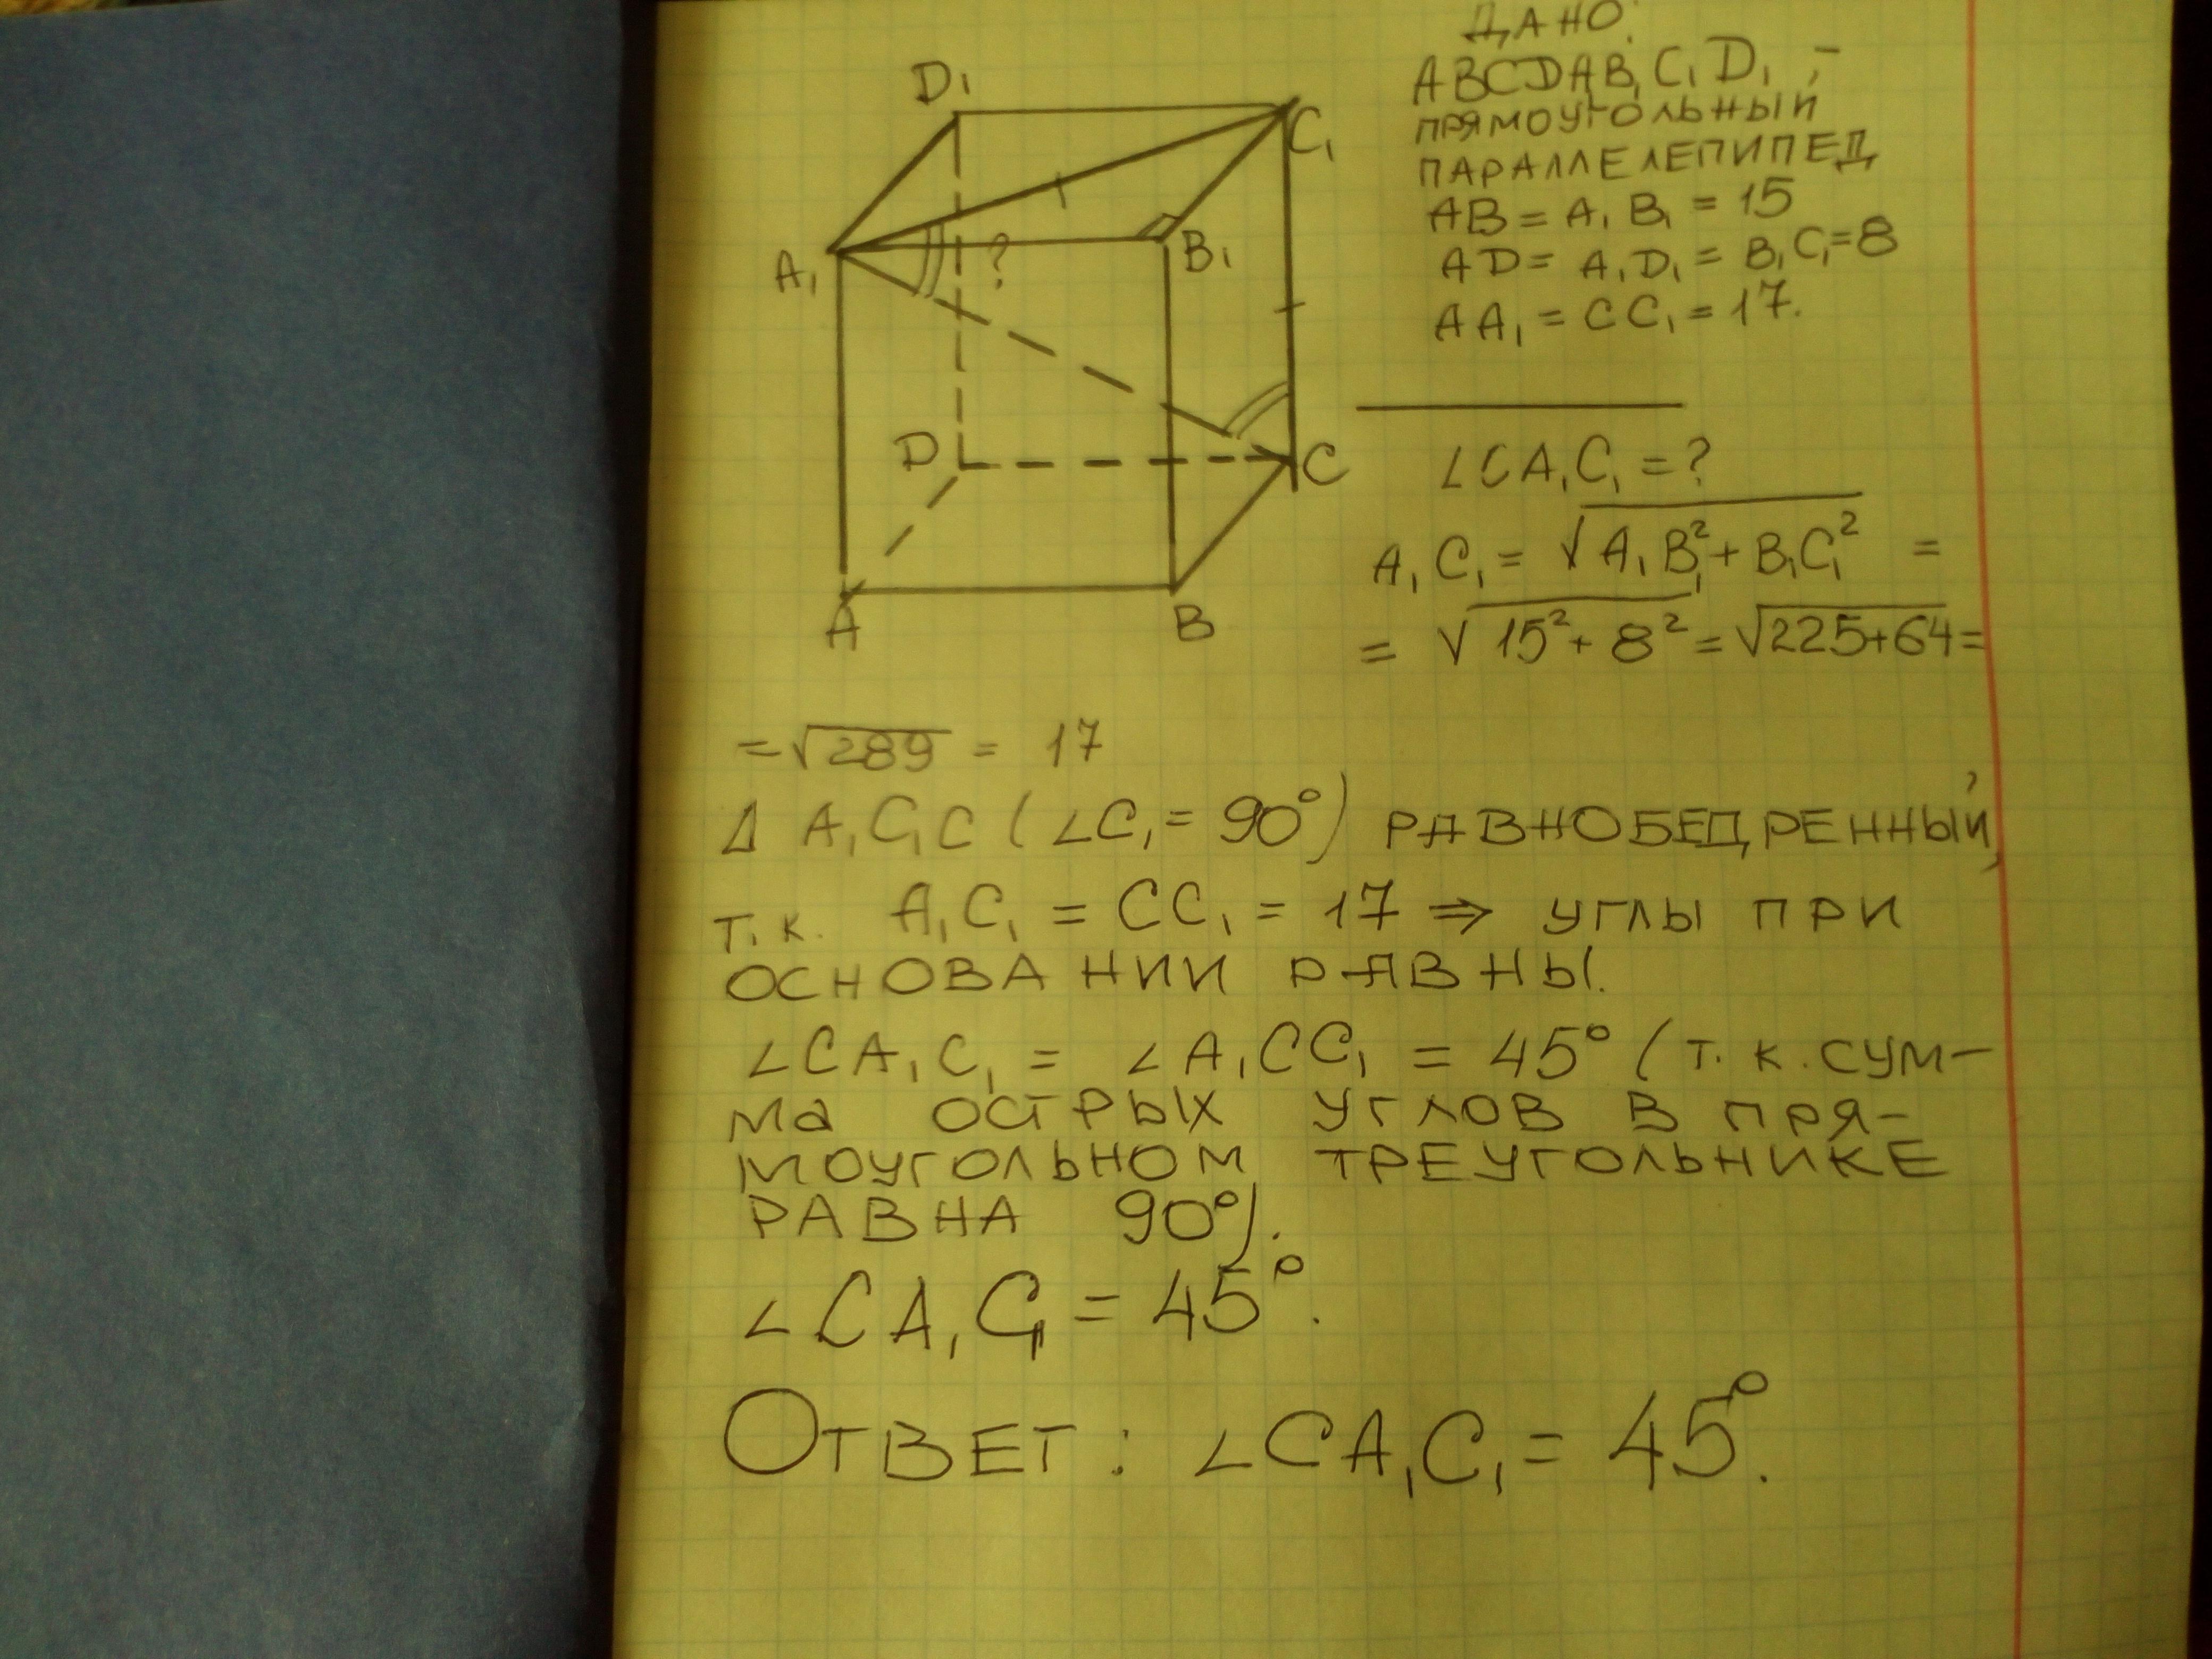 D₁
C₁
A₁
?
B₁
D
C
A
B
ДАНО:
ABCDA₁B₁C₁D₁ –
ПРЯМОУГОЛЬНЫЙ
ПАРАЛЛЕЛЕПИПЕД
AB = A₁B₁ = 15
AD = A₁D₁ = B₁C₁ = 8
AA₁ = CC₁ = 17.
∠CA₁C₁ = ?
A₁C₁ = √A₁B₁² + B₁C₁² =
= √15² + 8² = √225+64 =
= √289 = 17
Δ A₁C₁C (∠C₁ = 90°) РАВНОБЕДРЕННЫЙ,
т.к. A₁C₁ = CC₁ = 17 ⇒ УГЛЫ ПРИ
ОСНОВАНИИ РАВНЫ.
∠CA₁C₁ = ∠A₁CC₁ = 45° (т.к. СУМ-
Ма ОСТРЫХ УГЛОВ В ПРЯ-
МОУГОЛЬНОМ ТРЕУГОЛЬНИКЕ
РАВНА 90°).
∠CA₁C₁ = 45°.
ОТВЕТ: ∠CA₁C₁ = 45°.